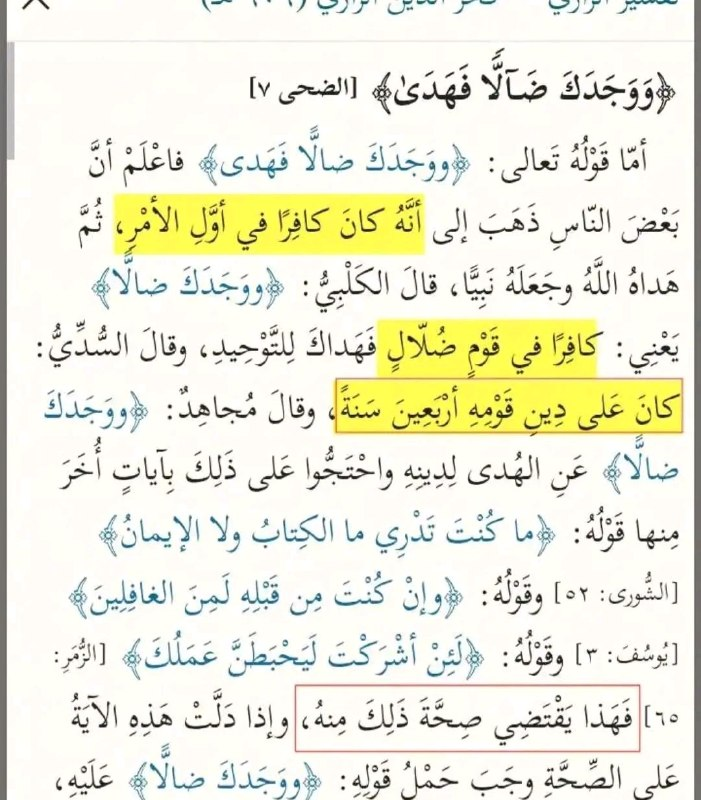 ﴿وَوَجَدَكَ ضَاۤلࣰّا فَهَدَىٰ﴾ [الضحى ٧]
أمّا قَوْلُهُ تَعالى: ﴿ووَجَدَكَ ضالًّا فَهَدى﴾ فاعْلَمْ أنَّ
بَعْضَ النّاسِ ذَهَبَ إلى أنَّهُ كانَ كافِرًا في أوَّلِ الأمْرِ، ثُمَّ
هَداهُ اللَّهُ وجَعَلَهُ نَبِيًّا، قالَ الكَلْبِيُّ: ﴿ووَجَدَكَ ضالًّا﴾
يَعْنِي: كافِرًا في قَوْمٍ ضُلّالٍ فَهَداكَ لِلتَّوْحِيدِ، وقالَ السُّدِّيُّ:
كانَ عَلى دِينِ قَوْمِهِ أرْبَعِينَ سَنَةً، وقالَ مُجاهِدٌ: ﴿ووَجَدَكَ
ضالًّا﴾ عَنِ الهُدى لِدِينِهِ واحْتَجُّوا عَلى ذَلِكَ بِآياتٍ أُخَرَ
مِنها قَوْلُهُ: ﴿ما كُنْتَ تَدْرِي ما الكِتابُ ولا الإيمانُ﴾
[الشُّورى: ٥٢] وقَوْلُهُ: ﴿وإنْ كُنْتَ مِن قَبْلِهِ لَمِنَ الغافِلِينَ﴾
[يُوسُفَ: ٣] وقَوْلُهُ: ﴿لَئِنْ أشْرَكْتَ لَيَحْبَطَنَّ عَمَلُكَ﴾ [الزُّمَرِ:
٦٥] فَهَذا يَقْتَضِي صِحَّةَ ذَلِكَ مِنهُ، وإذا دَلَّتْ هَذِهِ الآيَةُ
عَلى الصِّحَّةِ وجَبَ حَمْلُ قَوْلِهِ: ﴿ووَجَدَكَ ضالًّا﴾ عَلَيْهِ،